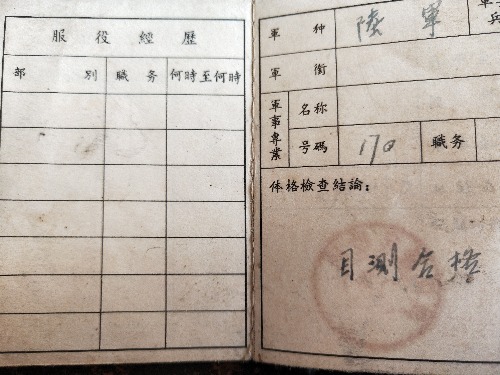 服役經歷
部別 職务 何時至何時
軍种 陸軍
軍銜
軍事專業 名称
号碼 170 職务
体格檢查結論：
目測合格